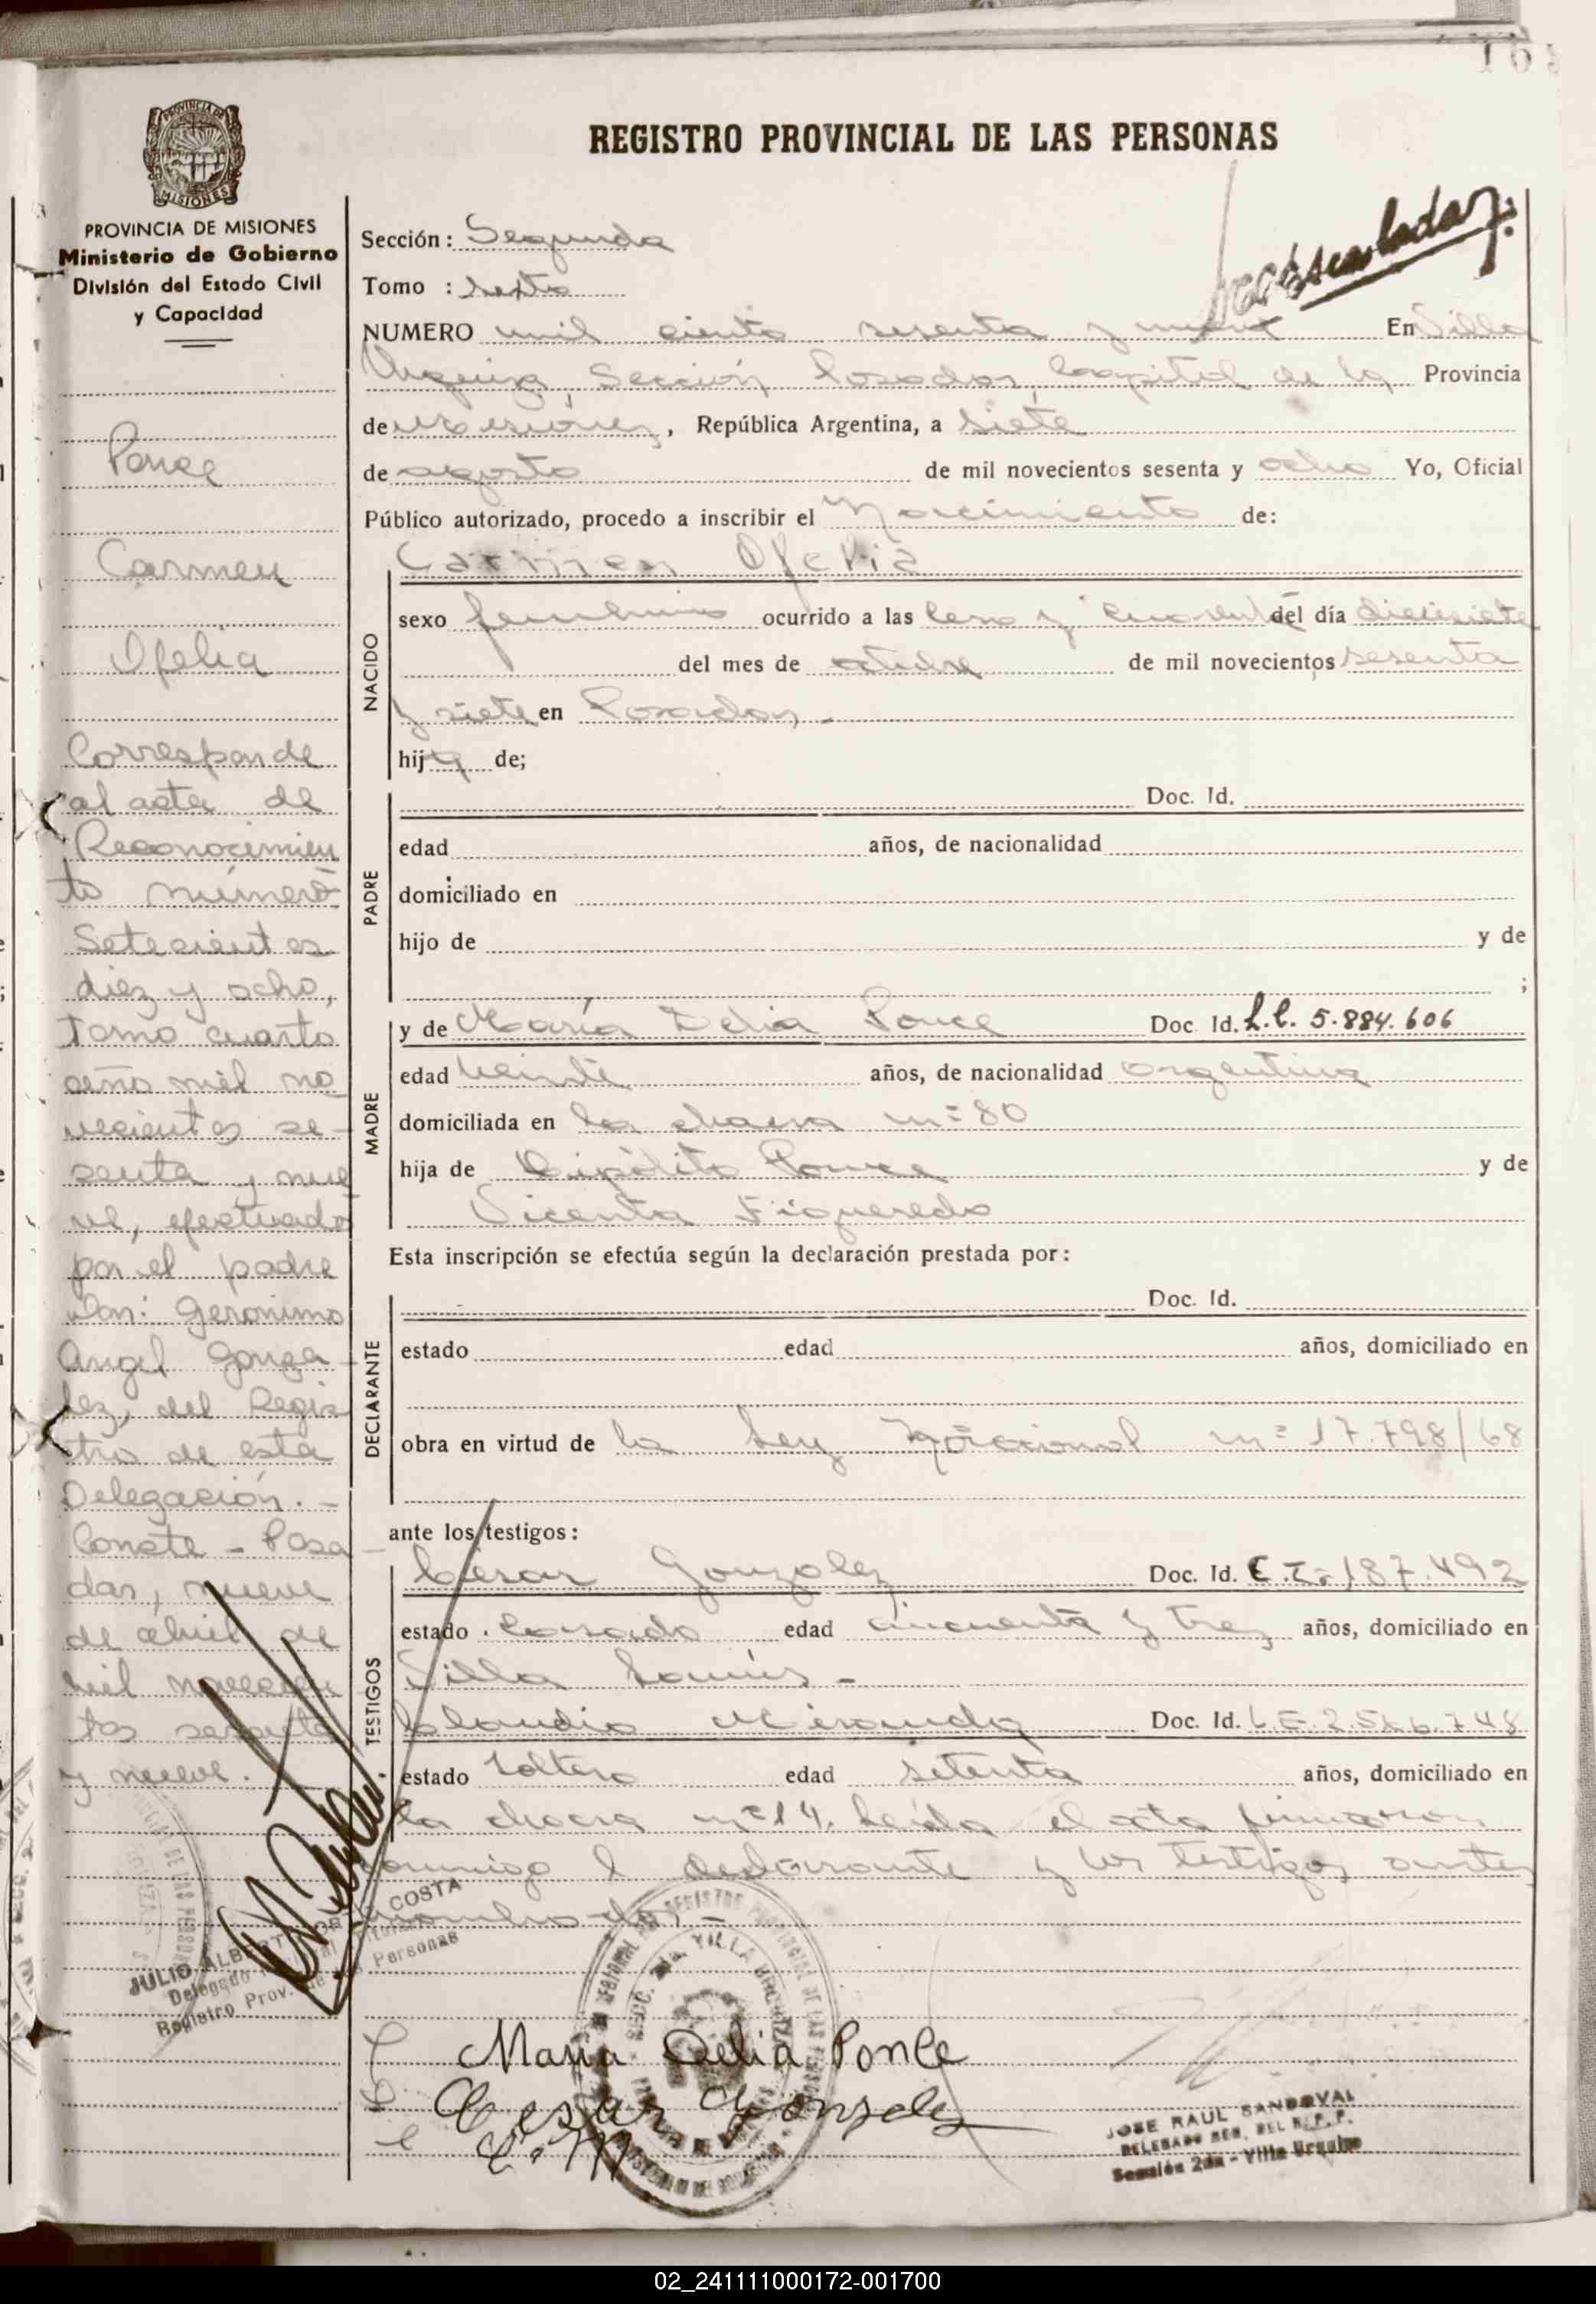 REGISTRO PROVINCIAL DE LAS PERSONAS
PROVINCIA DE
MISIONES
PROVINCIA DE MISIONES
Ministerio de Gobierno
División del Estado Civil
y Capacidad
Ponce
Carmen
Ofelia
Corresponde
al acta de
Reconocimien
to número
Setecientos
diez y ocho,
Tomo cuarto
año mil no
vecientos se-
senta y nue
ve, efectuado
por el padre
Don: Geronimo
Angel Gonza-
lez, del Regis
tro de esta
Delegación. -
Conste - Posa
das, nueve
de abril de
mil novecien
tos sesenta
y nueve.
JULIO ALBERT COSTA
Delegado
Registro Prov. de las Personas
Sección: Segunda
Tomo : sexto
NUMERO mil ciento sesenta y nueve En Villa
Urquiza, Sección Posadas, Capital de la Provincia
de Misiones, República Argentina, a siete
de agosto de mil novecientos sesenta y ocho Yo, Oficial
Público autorizado, procedo a inscribir el Nacimiento de:
Carmen Ofelia
NACIDO
sexo femenino ocurrido a las cero y cuarenta del día diecisiete
del mes de octubre de mil novecientos sesenta
y siete en Posadas -
hij a de;
PADRE
Doc. Id.
edad años, de nacionalidad
domiciliado en
hijo de y de
;
MADRE
y de María Delia Ponce Doc Id. L.C. 5.884.606
edad veinte años, de nacionalidad argentina
domiciliada en la chacra nº 80
hija de Hipólito Ponce y de
Vicenta Figueredo
Esta inscripción se efectúa según la declaración prestada por:
DECLARANTE
Doc. Id.
estado edad años, domiciliado en
obra en virtud de la Ley Nacional nº 17.798/68
ante los testigos:
TESTIGOS
César Gonzalez Doc. Id. C.I. 187.492
estado casado edad cincuenta y tres años, domiciliado en
Villa Lanús -
Claudio Miranda Doc. Id. L.E. 2.5 6.748
estado soltero edad setenta años, domiciliado en
la chacra nº 14. Leída el acta firmaron
conmigo l declarante y los testigos antes
nombrados, -
Maria Delia Ponce
Cesar Gonzalez
C. M
SECC. 2da. VILLA URQUIZA
JOSE RAUL SANDOVAL
DELEGADO REG. DEL R. P. P.
Sección 2da - Villa Urquiza
02_241111000172-001700